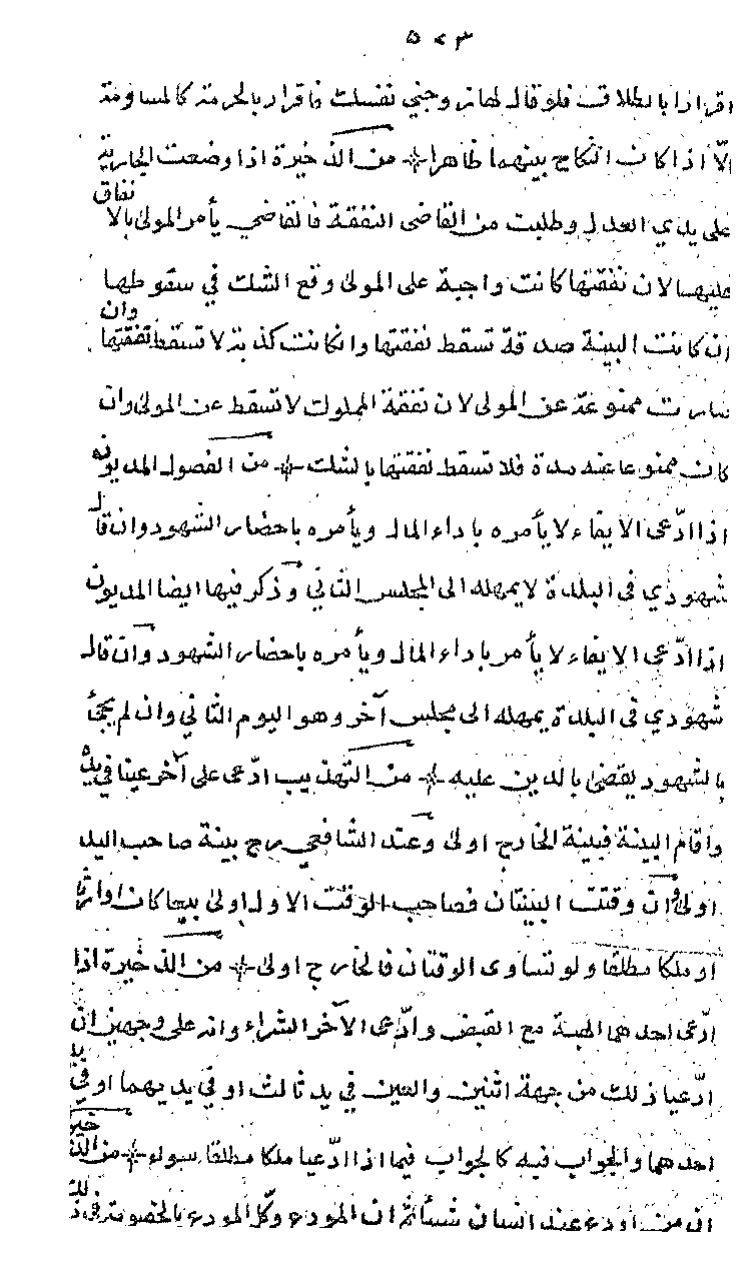 ٥٢٣
اقرارا بالطلاق فلو قال لها زوجني نفسك فاقرار بالحرمة كالمساومة
الّا اذا كان النكاح بينهما ظاهرا * من الذخيرة اذا وضعت الجارية
على يدي العدل وطلبت من القاضى النفقة فالقاضي يأمر المولى بالانفاق
عليها لان نفقتها كانت واجبة على المولى وقع الشك في سقوطها
ان كانت البينة صدقة تسقط نفقتها وانكانت كذبة لا تسقط نفقتها وان
صارت ممنوعة عن المولى لان نفقة المملوك لا تسقط عن المولى وان
كان ممنوعا عنه مدة فلا تسقط نفقتها بالشك * من الفصول المديون
اذا ادّعى الايفاء لا يأمره باداء المال ويأمره باحضار الشهود وان قال
شهودي فى البلدة لا يمهله الى المجلس الثاني وذكر فيها ايضا المديون
اذا ادّعى الايفاء لا يأمر باداء المال ويأمره باحضار الشهود وان قال
شهودي فى البلدة يمهله الى مجلس آخر وهو اليوم الثاني وان لم يجئ
بالشهود يقضى بالدين عليه * من التهذيب ادّعى على آخر عينا في يده
واقام البينة فبينة الخارج اولى وعند الشافعي رح بينة صاحب اليد
اولى وان وقتت البينتان فصاحب الوقت الاول اولى بيعا كان او ارثا
او ملكا مطلقا ولو تساوى الوقتان فالخارج اولى * من الذخيرة اذا
ادّعى احدهما الهبة مع القبض وادّعى الآخر الشراء وانه على وجهين ان
ادّعيا ذلك من جهة اثنين والعين في يد ثالث او في يديهما او في يد
احدهما والجواب فيه كالجواب فيما اذا ادّعيا ملكا مطلقا سواء * من الذخيرة
ان من اودع عند انسان شيأ ثم ان المودع وكّل المودع بالخصومة في ذلك